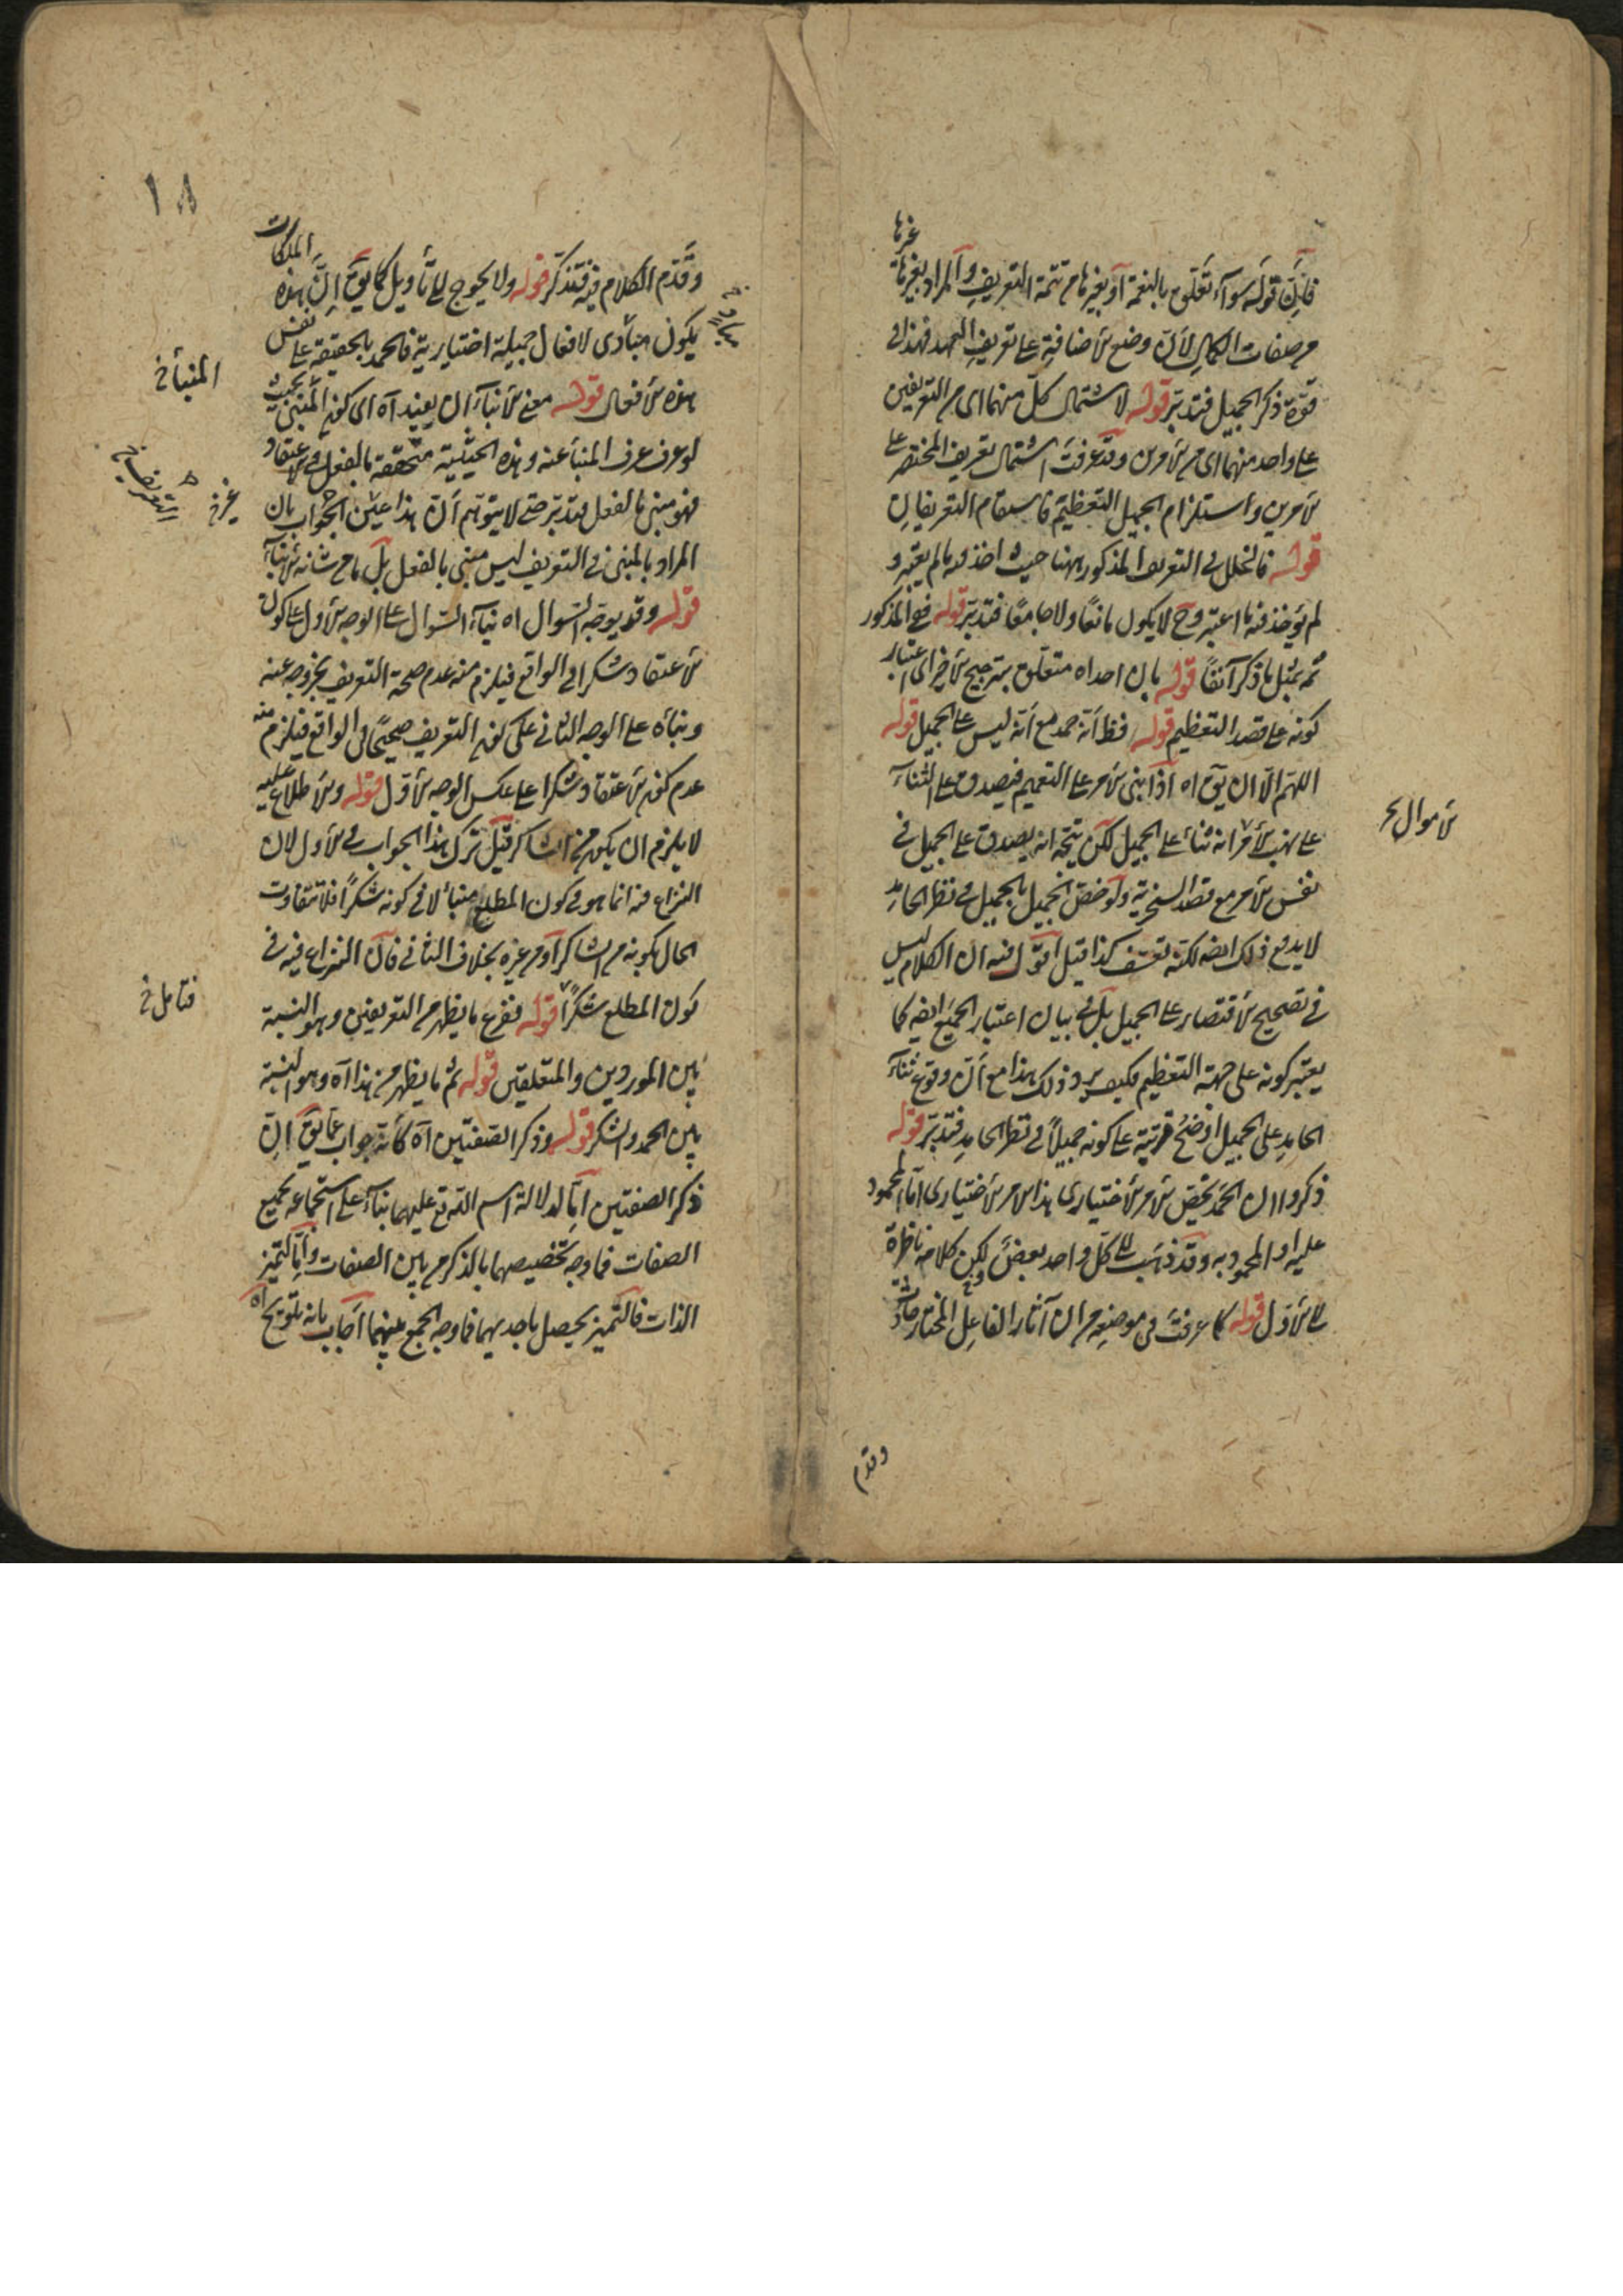 فان قوله سواء تعلق بالنعمة او بغيرها من تتمة التعريف والمراد بغيرها غيرها
من صفات الكمال لان وضع الاضافة على تعريف العهد فهذا في
قوة ذكر الجميل فتدبر قوله لاشتمال كل منهما اى من التعريفين
على واحد منهما اى من الامرين وقد عرفت اشتمال تعريف المختصر على
الامرين واستلزام الجميل التعظيم فاستقام التعريفان
قوله فالخلل في التعريف المذكور ههنا حيث اخذ فيه ما لم يعتبر و
لم يؤخذ فيه ما اعتبر وح لا يكون مانعا ولا جامعا فتدبر قوله فع المذكور
ثمه بمثل ما ذكر آنفا قوله بان احداه متعلق بترجيح الاخير اى اعتبار
كونه على قصد التعظيم قوله فظ انه حمد مع انه ليس على الجميل قوله
اللهم الا ان يق اه اذا بنى الامر على التعميم فيصدق على الثناء
على نهب الاموال انه ثناء على الجميل لكن يتجه انه يصدق على الجميل في
نفس الامر مع قصد السخرية ولو خص الجميل بالجميل في نظر الحامد
لا يدفع ذلك ايضه لكنه تعسف كذا قيل اقول فيه ان الكلام ليس
في تصحيح الاقتصار على الجميل بل في بيان اعتبار الجميع ايضه كما
يعتبر كونه على جهة التعظيم فكيف يرد ذلك هذا مع ان وقوع ثناء
الحامد على الجميل اوضح قرينة على كونه جميلا في نظر الحامد فتدبر قوله
ذكروا ان الحمد يخص الامر الاختيارى هذا الامر الاختيارى اما المحمود
عليه او المحمود به وقد ذهب الى كل واحد بعض لكن كلامه ناظرة
الى الاول قوله كما عرفت في موضعه من ان آثار الفاعل المختار حادثة
وقدم
الاموال صح
١٨
وقدم الكلام فيه فتذكر قوله ولا يحوج الى التأويل كما يق ان هذه الملكات
يكون مبادى لافعال جميلة اختيارية فالحمد بالحقيقة على نفس
هذه الافعال قوله معنى الانباء ان يفيد اه اى كون المنبئ بحيث
لو عرف عرف المنبأ عنه وهذه الحيثية متحققة بالفعل في الاعتقاد
فهو منبئ بالفعل فتدبر حتى لا يتوهم ان هذا عين الجواب بان
المراد بالمنبئ في التعريف ليس منبئ بالفعل بل ما من شانه الانباء
قوله وقد يوجه السوال اه بناء السوال على الوجه الاول على كون
الاعتقاد شكرا في الواقع فيلزم منه عدم صحة التعريف بخروجه عنه
وبناه على الوجه الثانى على كون التعريف صحيحا في الواقع فيلزم منه
عدم كون الاعتقاد شكرا على عكس الوجه الاول قوله والاطلاع عليه
لا يلزم ان يكون من الشاكر قيل ترك هذا الجواب في الاول لان
النزاع فيه انما هو في كون المطلع منبأ لا في كونه شكرا فلا تتفاوت
الحال بكونه من الشاكر او من غيره بخلاف الثانى فان النزاع فيه في
كون المطلع شكرا قوله فنفرع ما يظهر من التعريفين وهو النسبة
بين الموردين والمتعلقين قوله ثم ما يظهر من هذا اه وهو النسبة
بين الحمد والشكر قوله وذكر الصفتين اه كانه جواب عما يق ان
ذكر الصفتين اما لدلالة اسم الله تع عليهما بناء على استجماعه لجميع
الصفات فما وجه تخصيصهما بالذكر من بين الصفات واما لتميز
الذات فالتميز يحصل باحديهما فما وجه الجمع بينهما اجاب بانه تلويح اه
المنبأ خ
غير خ
فتأمل خ